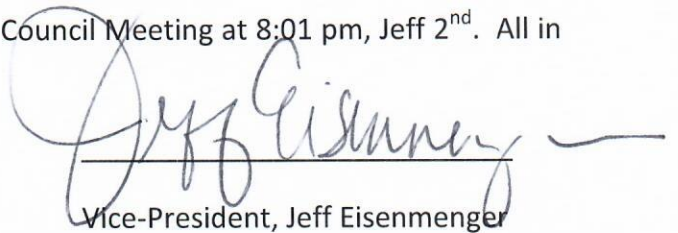 Council Meeting at 8:01 pm, Jeff 2nd. All in
Jeff Eisenmenger
Vice-President, Jeff Eisenmenger